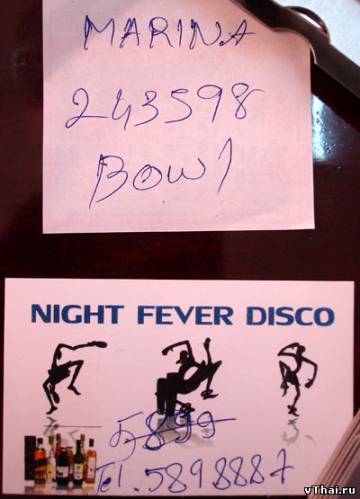 MARINA
243598
BOWL
NIGHT FEVER DISCO
Tel. 5898887
vThai.ru